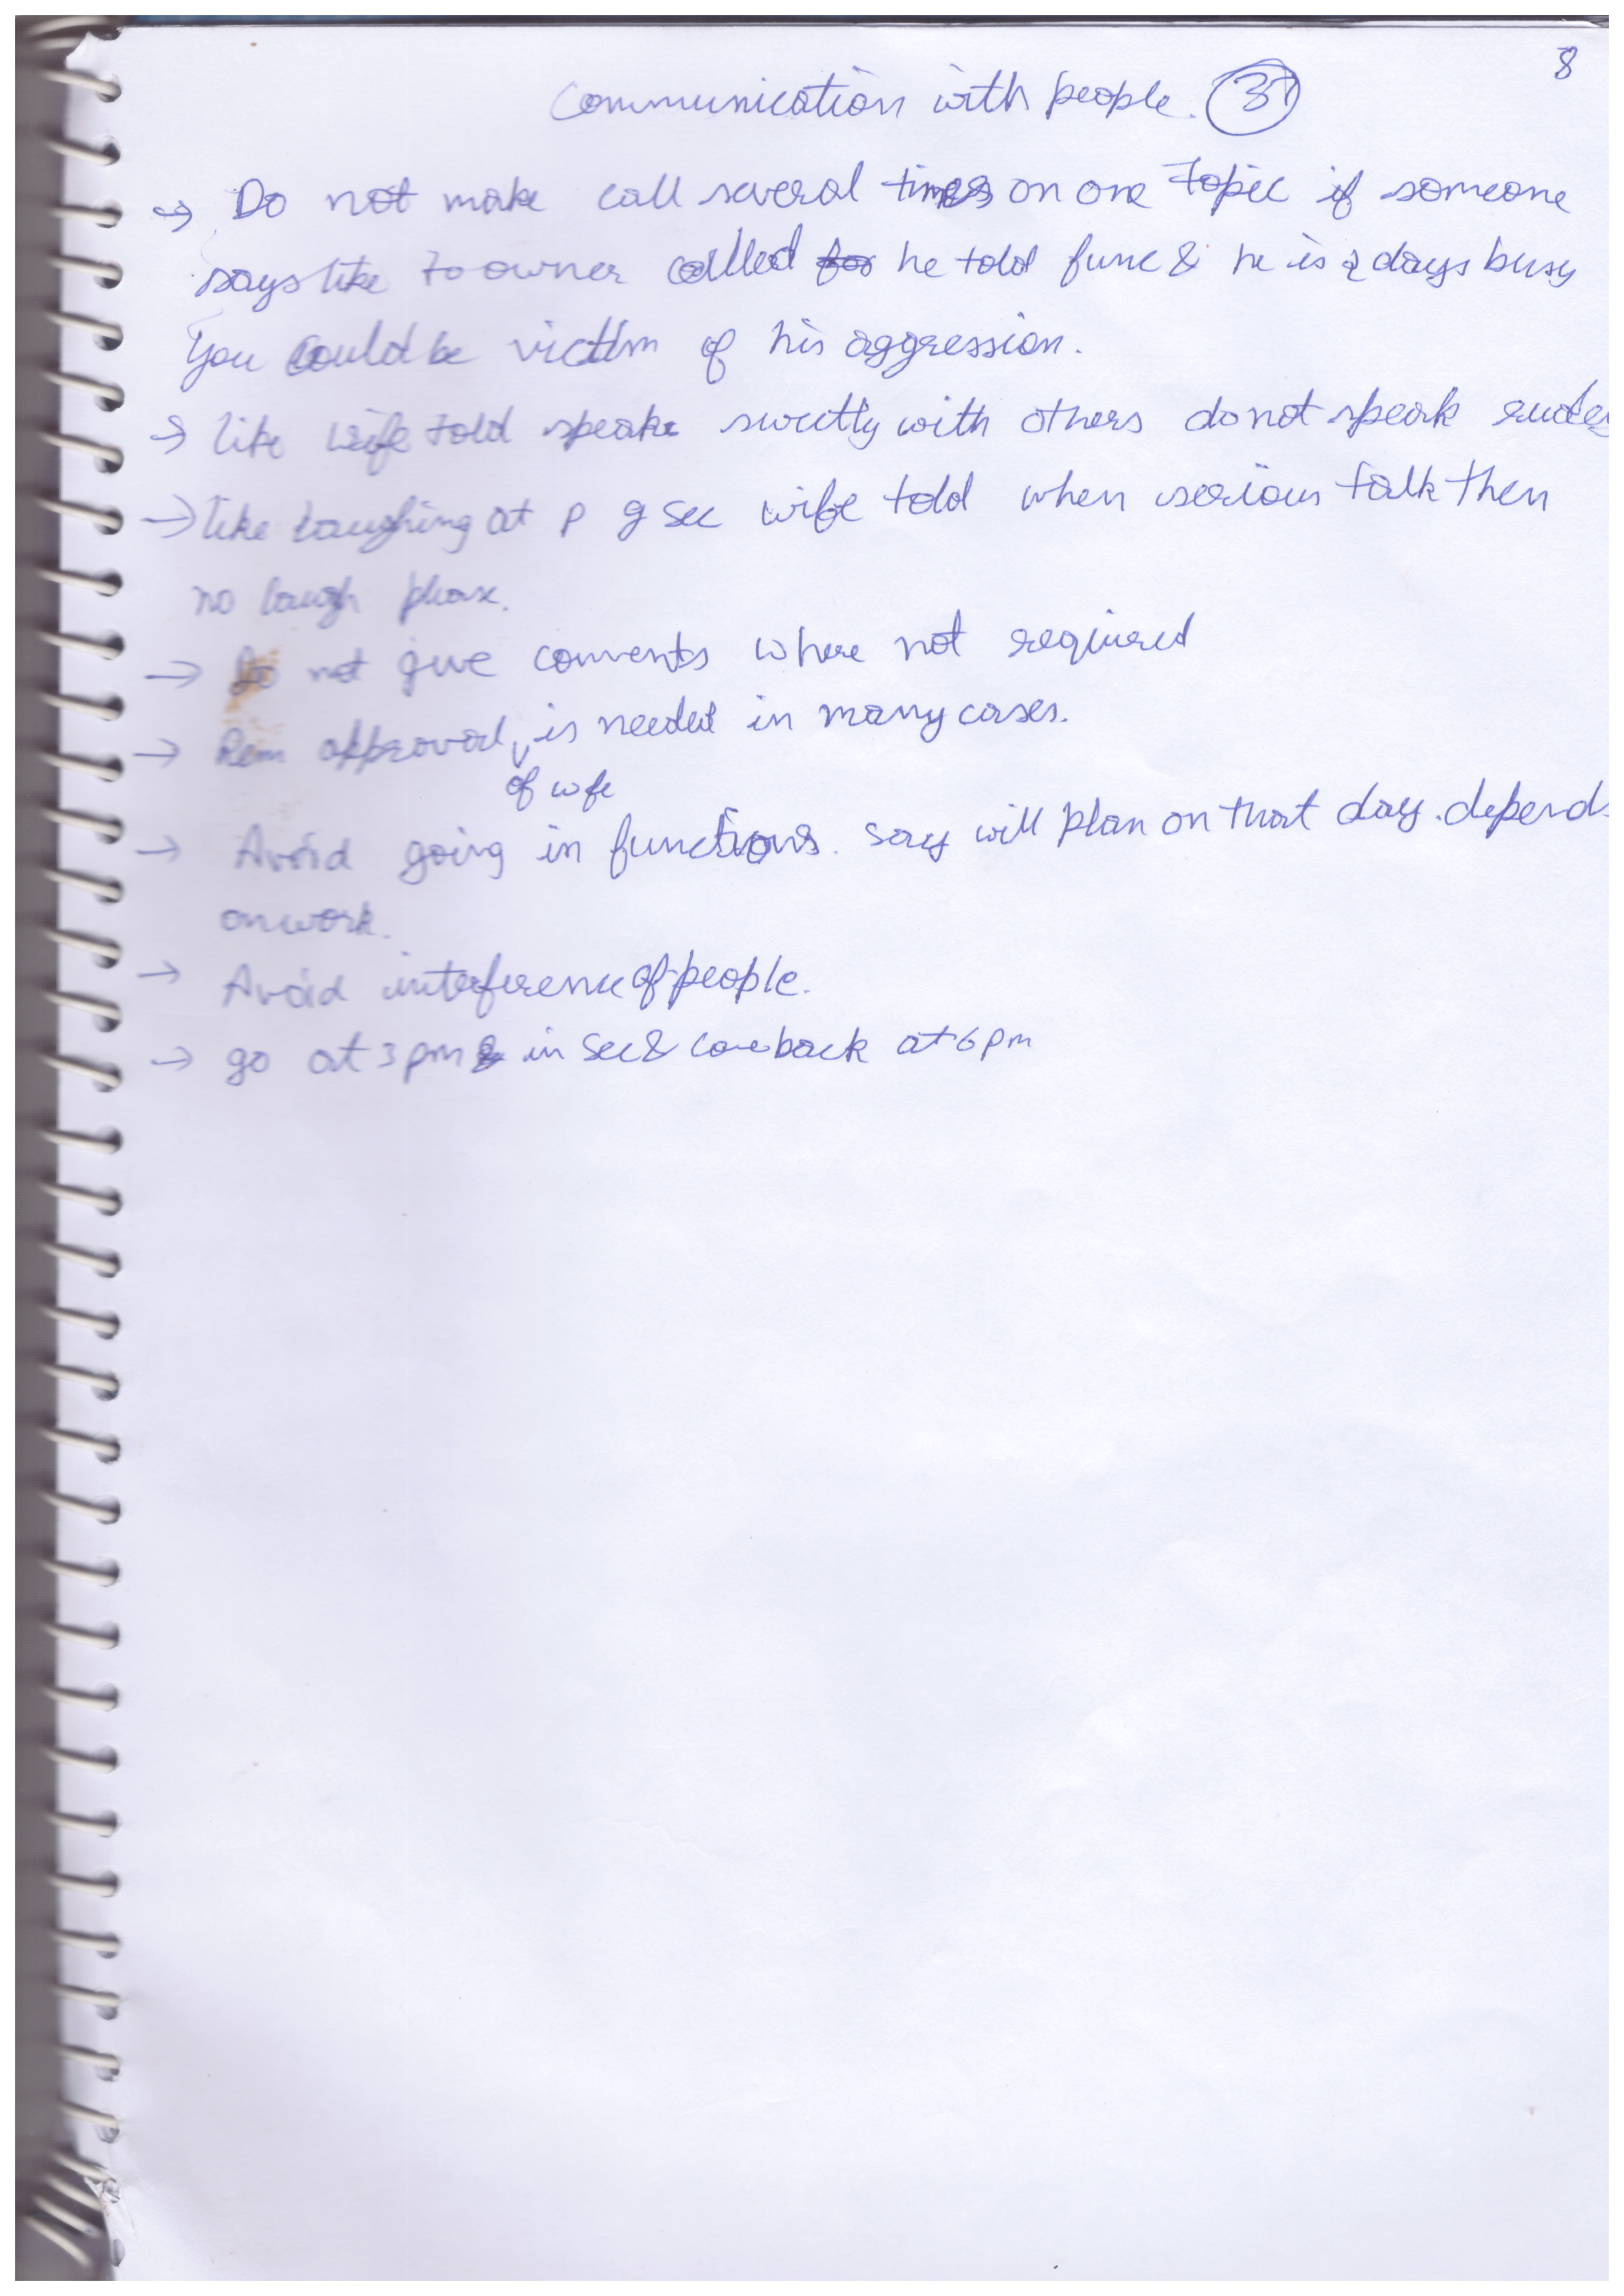 8
Communication with people. 37
→ Do not make call several times on one topic if someone
says like to owner called he told func & he is 2 days busy
You could be victim of his aggression.
→ like wife told speak sweetly with others do not speak
→ like laughing at p g sec wife told when serious talk then
no laugh please.
→ Do not give comments where not required
→ Rem approval is needed in many cases.
of wife
→ Avoid going in functions. say will plan on that day. depends
on work.
→ Avoid interference of people.
→ go at 3 pm in sec & come back at 6 pm